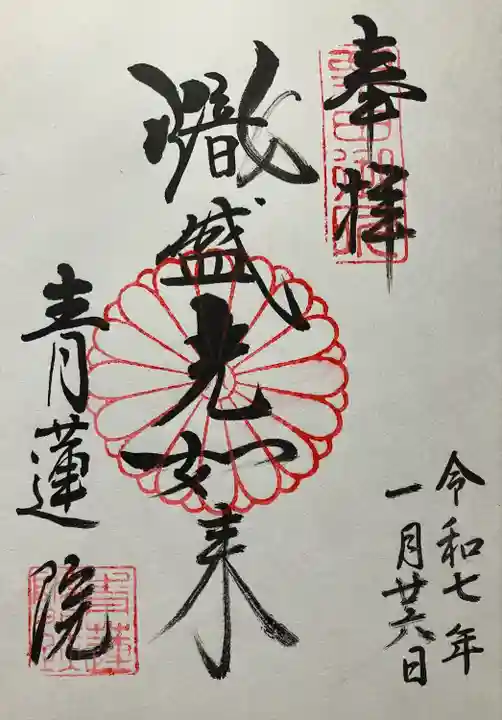 奉拝
令和七年
一月廿六日
熾盛光如来
青蓮院